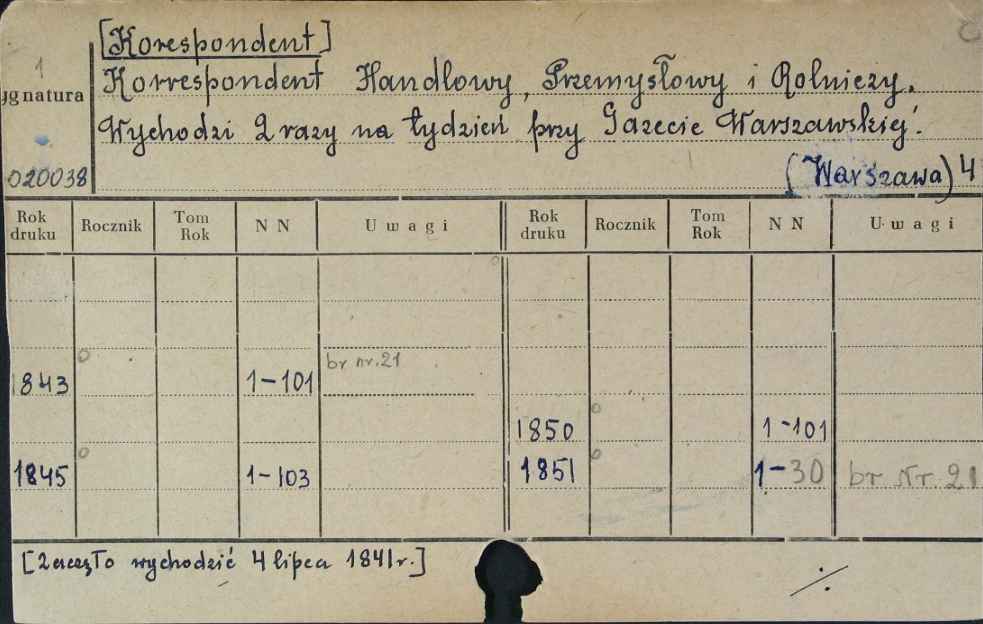 [Korespondent]
1
Korrespondent Handlowy, Przemysłowy i Rolniczy.
ygnatura
Wychodzi 2 razy na tydzień przy Gazecie Warszawskiej.
020038
(Warszawa) 4
Rok druku Rocznik Tom Rok NN Uwagi Rok druku Rocznik Tom Rok NN Uwagi
1843 1-101 br nr. 21
1850 1-101
1845 1-103 1851 1-30 br Nr. 21
[Zaczęło wychodzić 4 lipca 1841 r.]
./.